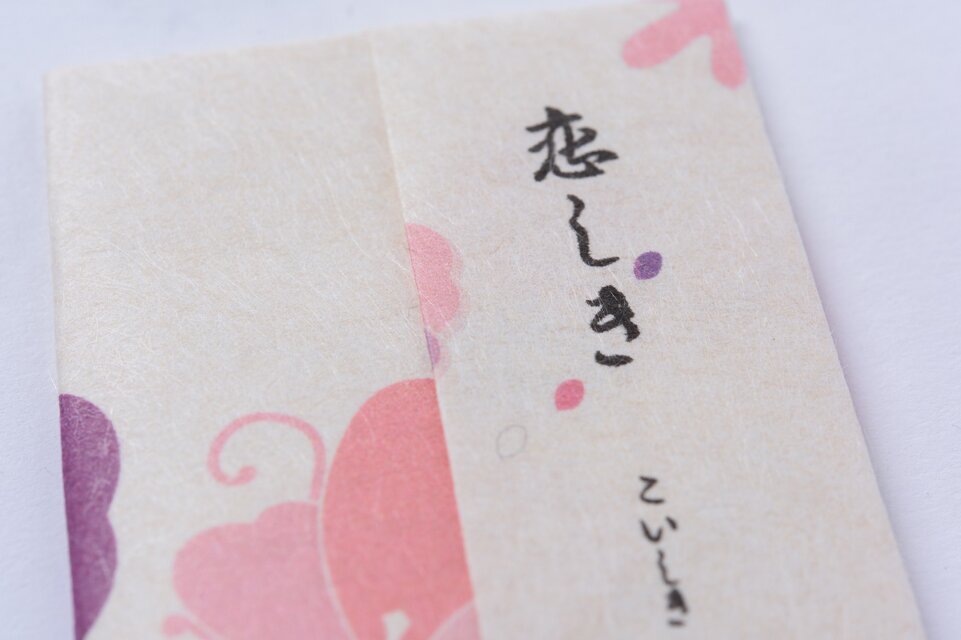 恋しき
こいしき